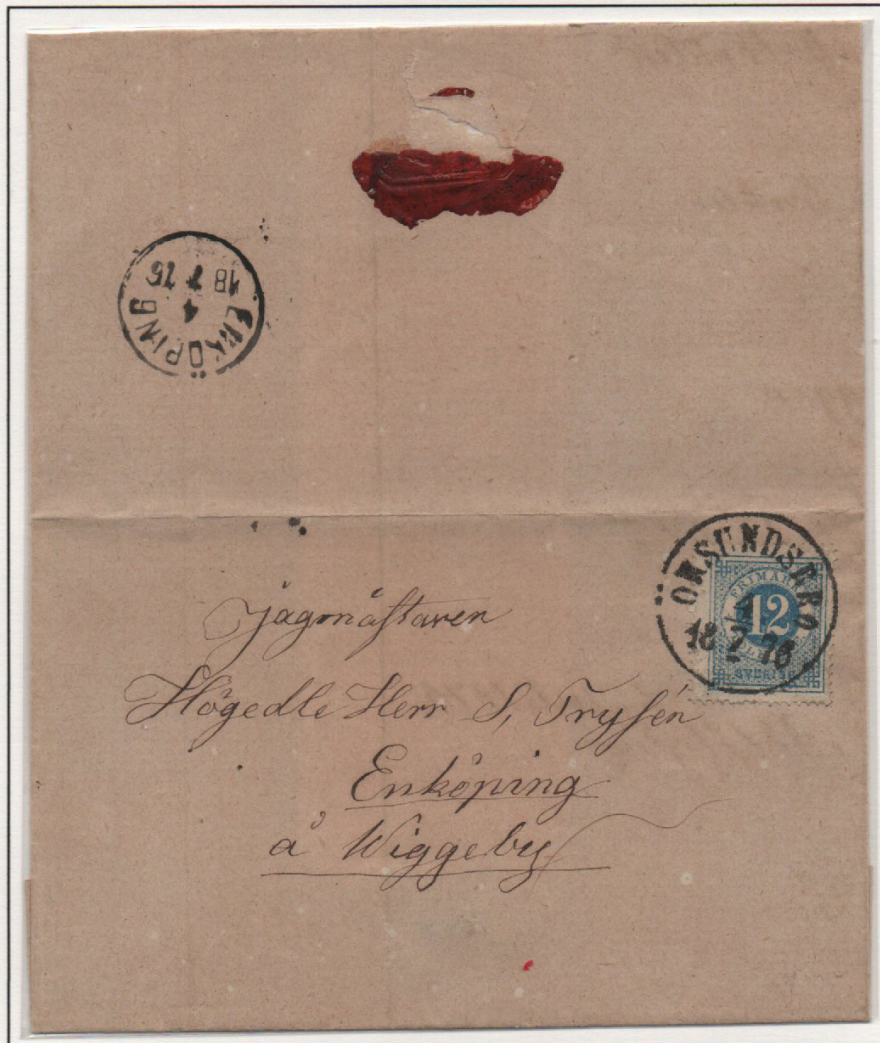 ENKÖPING
4
18 7 76
ÖRSUNDSBRO
4
18 7 76
FRIMÄRKE
12
SVERIGE
Jägmästaren
Högedle Herr S, Trysén
Enköping
å Wiggeby